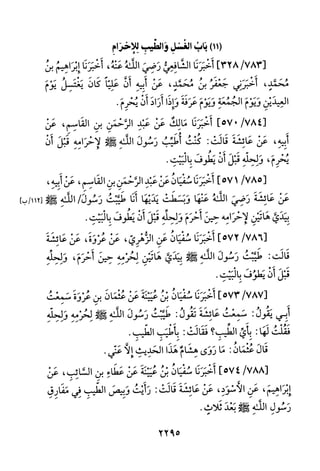 (١١) بَابُ الغُسْلِ وَالطِّيبِ لِلإِحْرَامِ
[٣٢٨/٧٨٣] أَخْبَرَنَا الشَّافِعِيُّ رَضِيَ اللَّهُ عَنْهُ، أَخْبَرَنَا إِبْرَاهِيمُ بنُ
مُحَمَّدٍ، أَخْبَرَنِي جَعْفَرُ بنُ مُحَمَّدٍ، عَنْ أَبِيهِ أَنَّ عَلِيًّا كَانَ يَغْتَسِلُ يَوْمَ
العِيدَيْنِ وَيَوْمَ الجُمُعَةِ وَيَوْمَ عَرَفَةَ وَإِذَا أَرَادَ أَنْ يُحْرِمَ.
[٥٧٠/٧٨٤] أَخْبَرَنَا مَالِكٌ عَنْ عَبْدِ الرَّحْمَنِ بنِ القَاسِمِ، عَنْ
أَبِيهِ، عَنْ عَائِشَةَ قَالَتْ: كُنْتُ أُطَيِّبُ رَسُولَ اللَّهِ ﷺ لِإِحْرَامِهِ قَبْلَ أَنْ
يُحْرِمَ، وَلِحِلِّهِ قَبْلَ أَنْ يَطُوفَ بِالْبَيْتِ.
[٥٧١/٧٨٥] أَخْبَرَنَا سُفْيَانُ عَنْ عَبْدِ الرَّحْمَنِ بنِ القَاسِمِ، عَنْ أَبِيهِ،
عَنْ عَائِشَةَ رَضِيَ اللَّهُ عَنْهَا وَبَسَطَتْ يَدَيْهَا أَنَا طَيَّبْتُ رَسُولَ/ اللَّهِ ﷺ (١١٢/ب)
بِيَدَيَّ هَاتَيْنِ لِإِحْرَامِهِ حِينَ أَحْرَمَ وَلِحِلِّهِ قَبْلَ أَنْ يَطُوفَ بِالْبَيْتِ.
[٥٧٢/٧٨٦] أَخْبَرَنَا سُفْيَانُ عَنِ الزُّهْرِيِّ، عَنْ عُرْوَةَ، عَنْ عَائِشَةَ
قَالَت: طَيَّبْتُ رَسُولَ اللَّهِ ﷺ بِيَدَيَّ هَاتَيْنِ لِحُرْمِهِ حِينَ أَحْرَمَ، وَلِحِلِّهِ
قَبْلَ أَنْ يَطُوفَ بِالْبَيْتِ.
[٥٧٣/٧٨٧] أَخْبَرَنَا سُفْيَانُ بْنُ عُيَيْنَةَ عَنْ عُثْمَانَ بنِ عُرْوَةَ سَمِعْتُ
أَبِي يَقُولُ: سَمِعْتُ عَائِشَةَ تَقُولُ: طَيَّبْتُ رَسُولَ اللَّهِ ﷺ لِحُرْمِهِ وَلِحِلِّهِ
فَقُلْتُ لَهَا: بِأَيِّ الطِّيبِ؟ فَقَالَتْ: بِأَطْيَبِ الطِّيبِ.
قَالَ عُثْمَانُ: مَا رَوَى هِشَامٌ هَذَا الحَدِيثَ إِلاَّ عَنِّي.
[٥٧٤/٧٨٨] أَخْبَرَنَا سُفْيَانُ بْنُ عُيَيْنَةَ عَنْ عَطَاءِ بنِ السَّائِبِ، عَنْ
إِبْرَاهِيمَ، عَنِ الأَسْوَدِ، عَنْ عَائِشَةَ قَالَتْ: رَأَيْتُ وَبِيصَ الطِّيبِ فِي مَفَارِقِ
رَسُولِ اللَّهِ ﷺ بَعْدَ ثَلاَثٍ.
٢٢٩٥